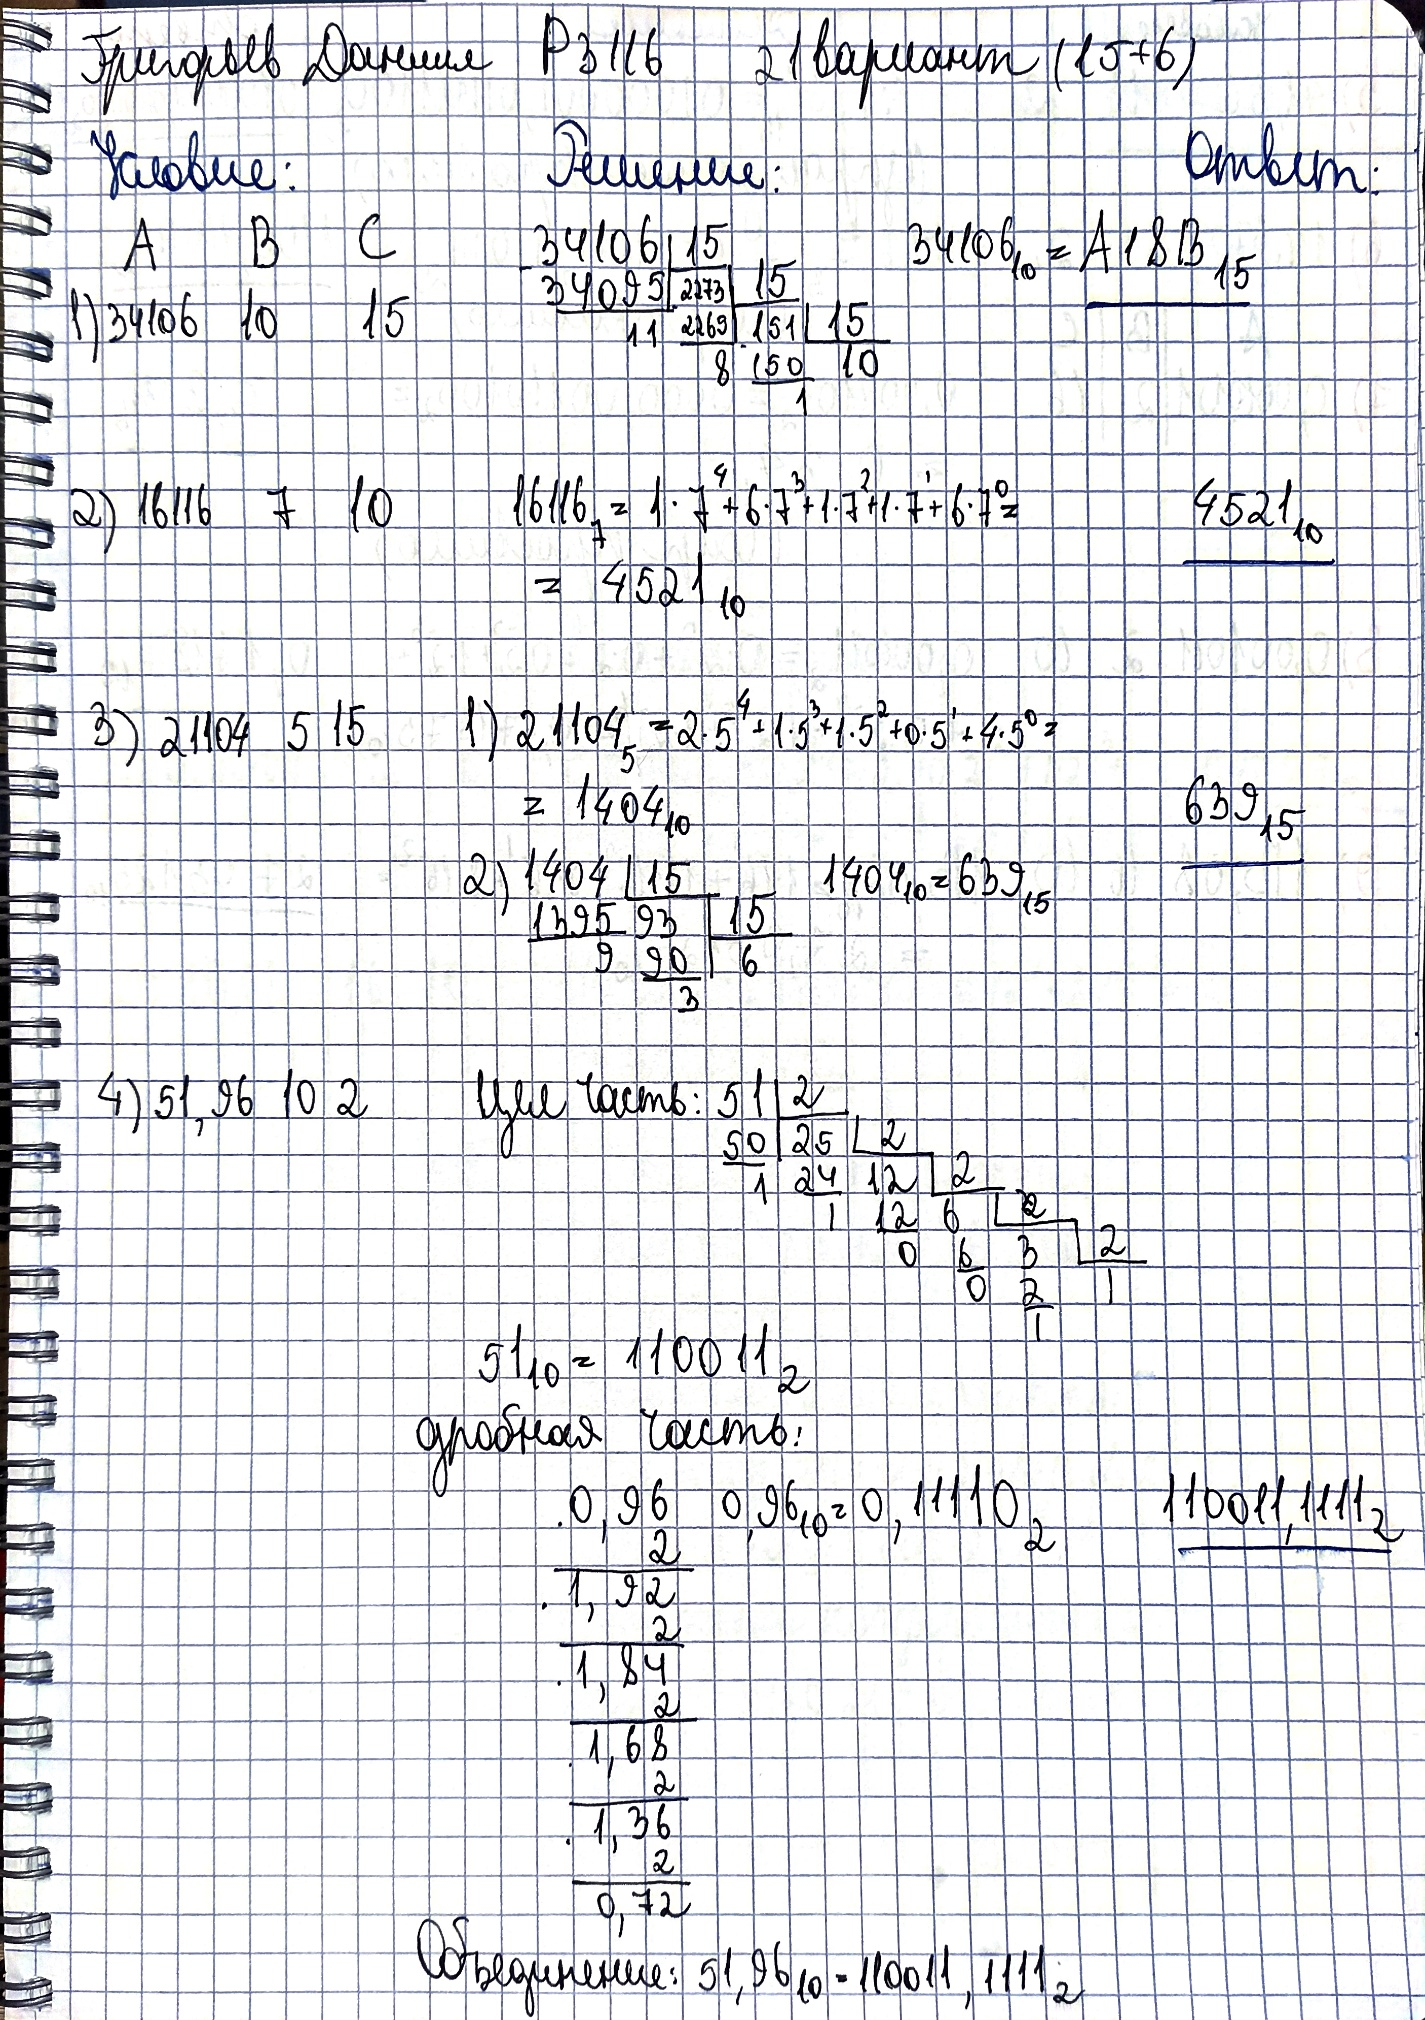 Григорьев Даниил P3116 21 вариант (15+6)
Условие: Решение: Ответ:
A B C
1) 34106 10 15
34106 15
34095 2273 15
11 2269 151 15
8 150 10
1
34106₁₀ = A18B₁₅
2) 16116 7 10 16116₇ = 1·7⁴+6·7³+1·7²+1·7¹+6·7⁰=
= 4521₁₀
4521₁₀
3) 21104 5 15 1) 21104₅ = 2·5⁴+1·5³+1·5²+0·5¹+4·5⁰=
= 1404₁₀
639₁₅
2) 1404 15 1404₁₀=639₁₅
1395 93 15
9 90 6
3
4) 51,96 10 2 Цел часть: 51 2
50 25 2
1 24 12 2
1 12 6 2
0 6 3 2
0 2 1
1
51₁₀ = 110011₂
дробная часть:
0,96 0,96₁₀=0,11110₂ 110011,1111₂
2
1,92
2
1,84
2
1,68
2
1,36
2
0,72
Объединение: 51,96₁₀=110011,1111₂